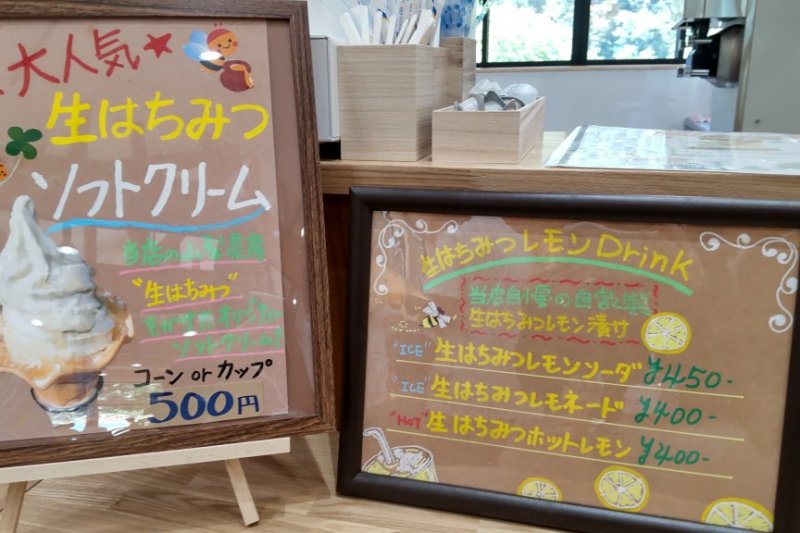 大人気★
生はちみつ
ソフトクリーム
当店の
"生はちみつ"
をかけた
ソフトクリーム!
コーン or カップ
500円
生はちみつレモンDrink
当店自慢の自家製
生はちみつレモン漬け
"ICE" 生はちみつレモンソーダ ¥450-
"ICE" 生はちみつレモネード ¥400-
"HOT" 生はちみつホットレモン ¥400-